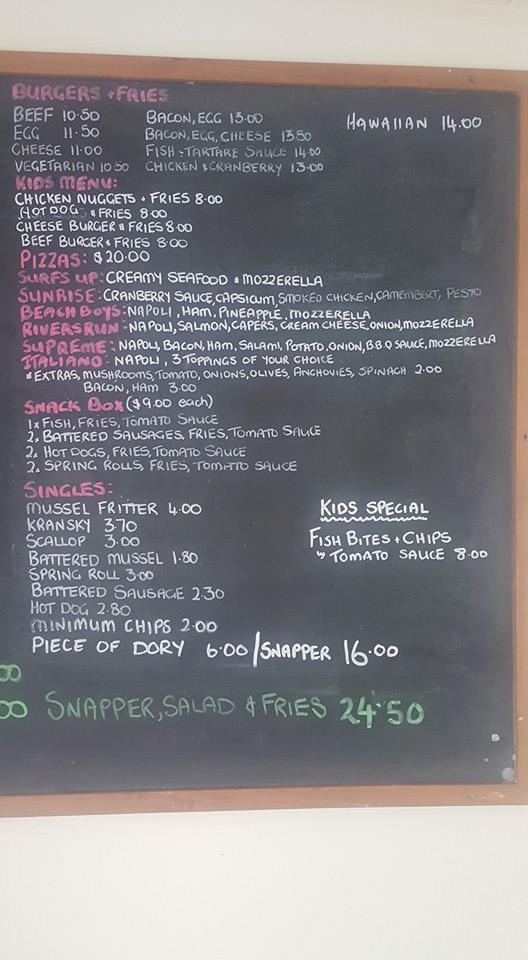 BURGERS + FRIES
BEEF 10.50 BACON, EGG 13.00 HAWAIIAN 14.00
EGG 11.50 BACON, EGG, CHEESE 13.50
CHEESE 11.00 FISH + TARTARE SAUCE 14.00
VEGETARIAN 10.50 CHICKEN & CRANBERRY 13.00
KIDS MENU:
CHICKEN NUGGETS + FRIES 8.00
HOT DOG & FRIES 8.00
CHEESE BURGER & FRIES 8.00
BEEF BURGER & FRIES 8.00
PIZZAS: $20.00
SURFS UP: CREAMY SEAFOOD & MOZZERELLA
SUNRISE: CRANBERRY SAUCE, CAPSICUM, SMOKED CHICKEN, CAMEMBERT, PESTO
BEACH BOYS: NAPOLI, HAM, PINEAPPLE, MOZZERELLA
RIVERSRUN - NAPOLI, SALMON, CAPERS, CREAM CHEESE, ONION, MOZZERELLA
SUPREME: NAPOLI, BACON, HAM, SALAMI, POTATO, ONION, BBQ SAUCE, MOZZERELLA
ITALIANO: NAPOLI, 3 TOPPINGS OF YOUR CHOICE
*EXTRAS, MUSHROOMS, TOMATO, ONIONS, OLIVES, ANCHOVIES, SPINACH 2.00
BACON, HAM 3.00
SNACK BOX ($9.00 each)
1x FISH, FRIES, TOMATO SAUCE
2x BATTERED SAUSAGES, FRIES, TOMATO SAUCE
2x HOT DOGS, FRIES, TOMATO SAUCE
2x SPRING ROLLS, FRIES, TOMATO SAUCE
SINGLES:
MUSSEL FRITTER 4.00
KRANSKY 3.70
SCALLOP 3.00
BATTERED MUSSEL 1.80
SPRING ROLL 3.00
BATTERED SAUSAGE 2.30
HOT DOG 2.80
MINIMUM CHIPS 2.00
PIECE OF DORY 6.00 / SNAPPER 16.00
KIDS SPECIAL
FISH BITES + CHIPS
↳ TOMATO SAUCE 8.00
00
00 SNAPPER, SALAD & FRIES 24.50